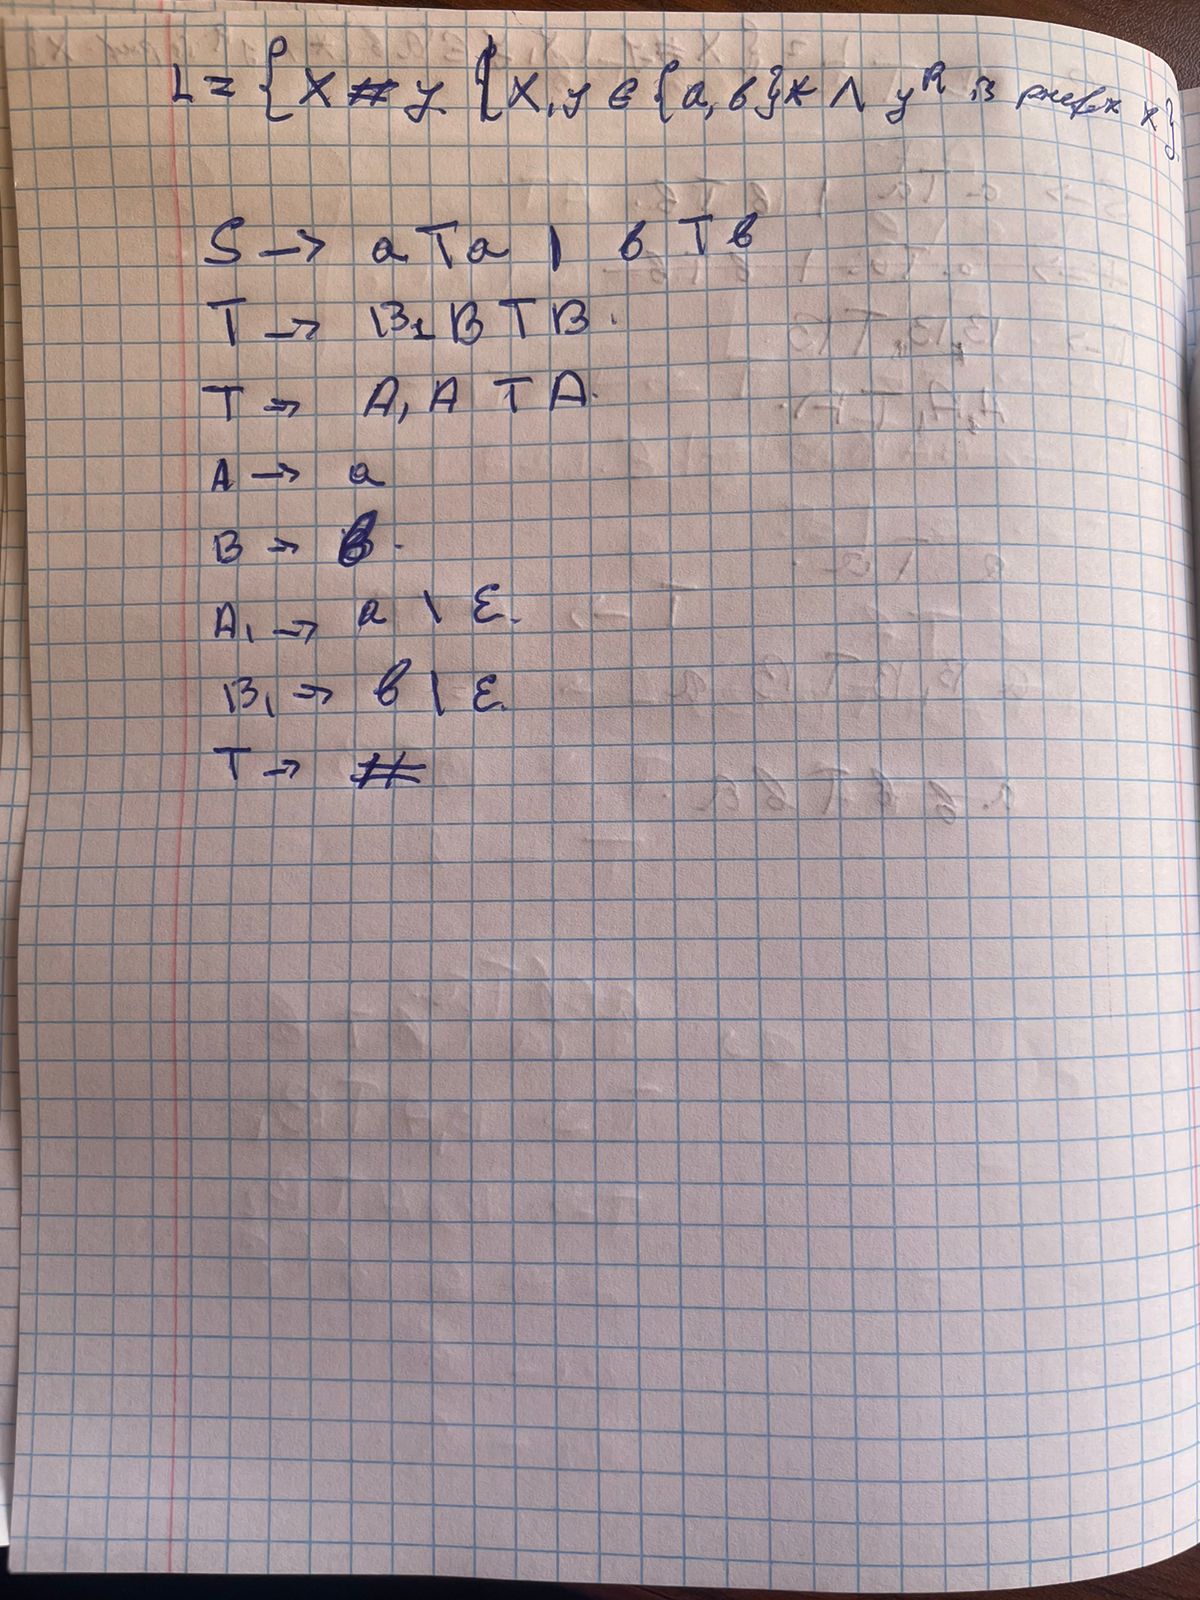 L = { X # y { X, y ∈ {a, b}* ∧ y^R is prefix x}
S → aTa | bTb
T → B₁ B T B.
T → A₁ A T A.
A → a
B → b.
A₁ → a \ ε.
B₁ → b \ ε.
T → #